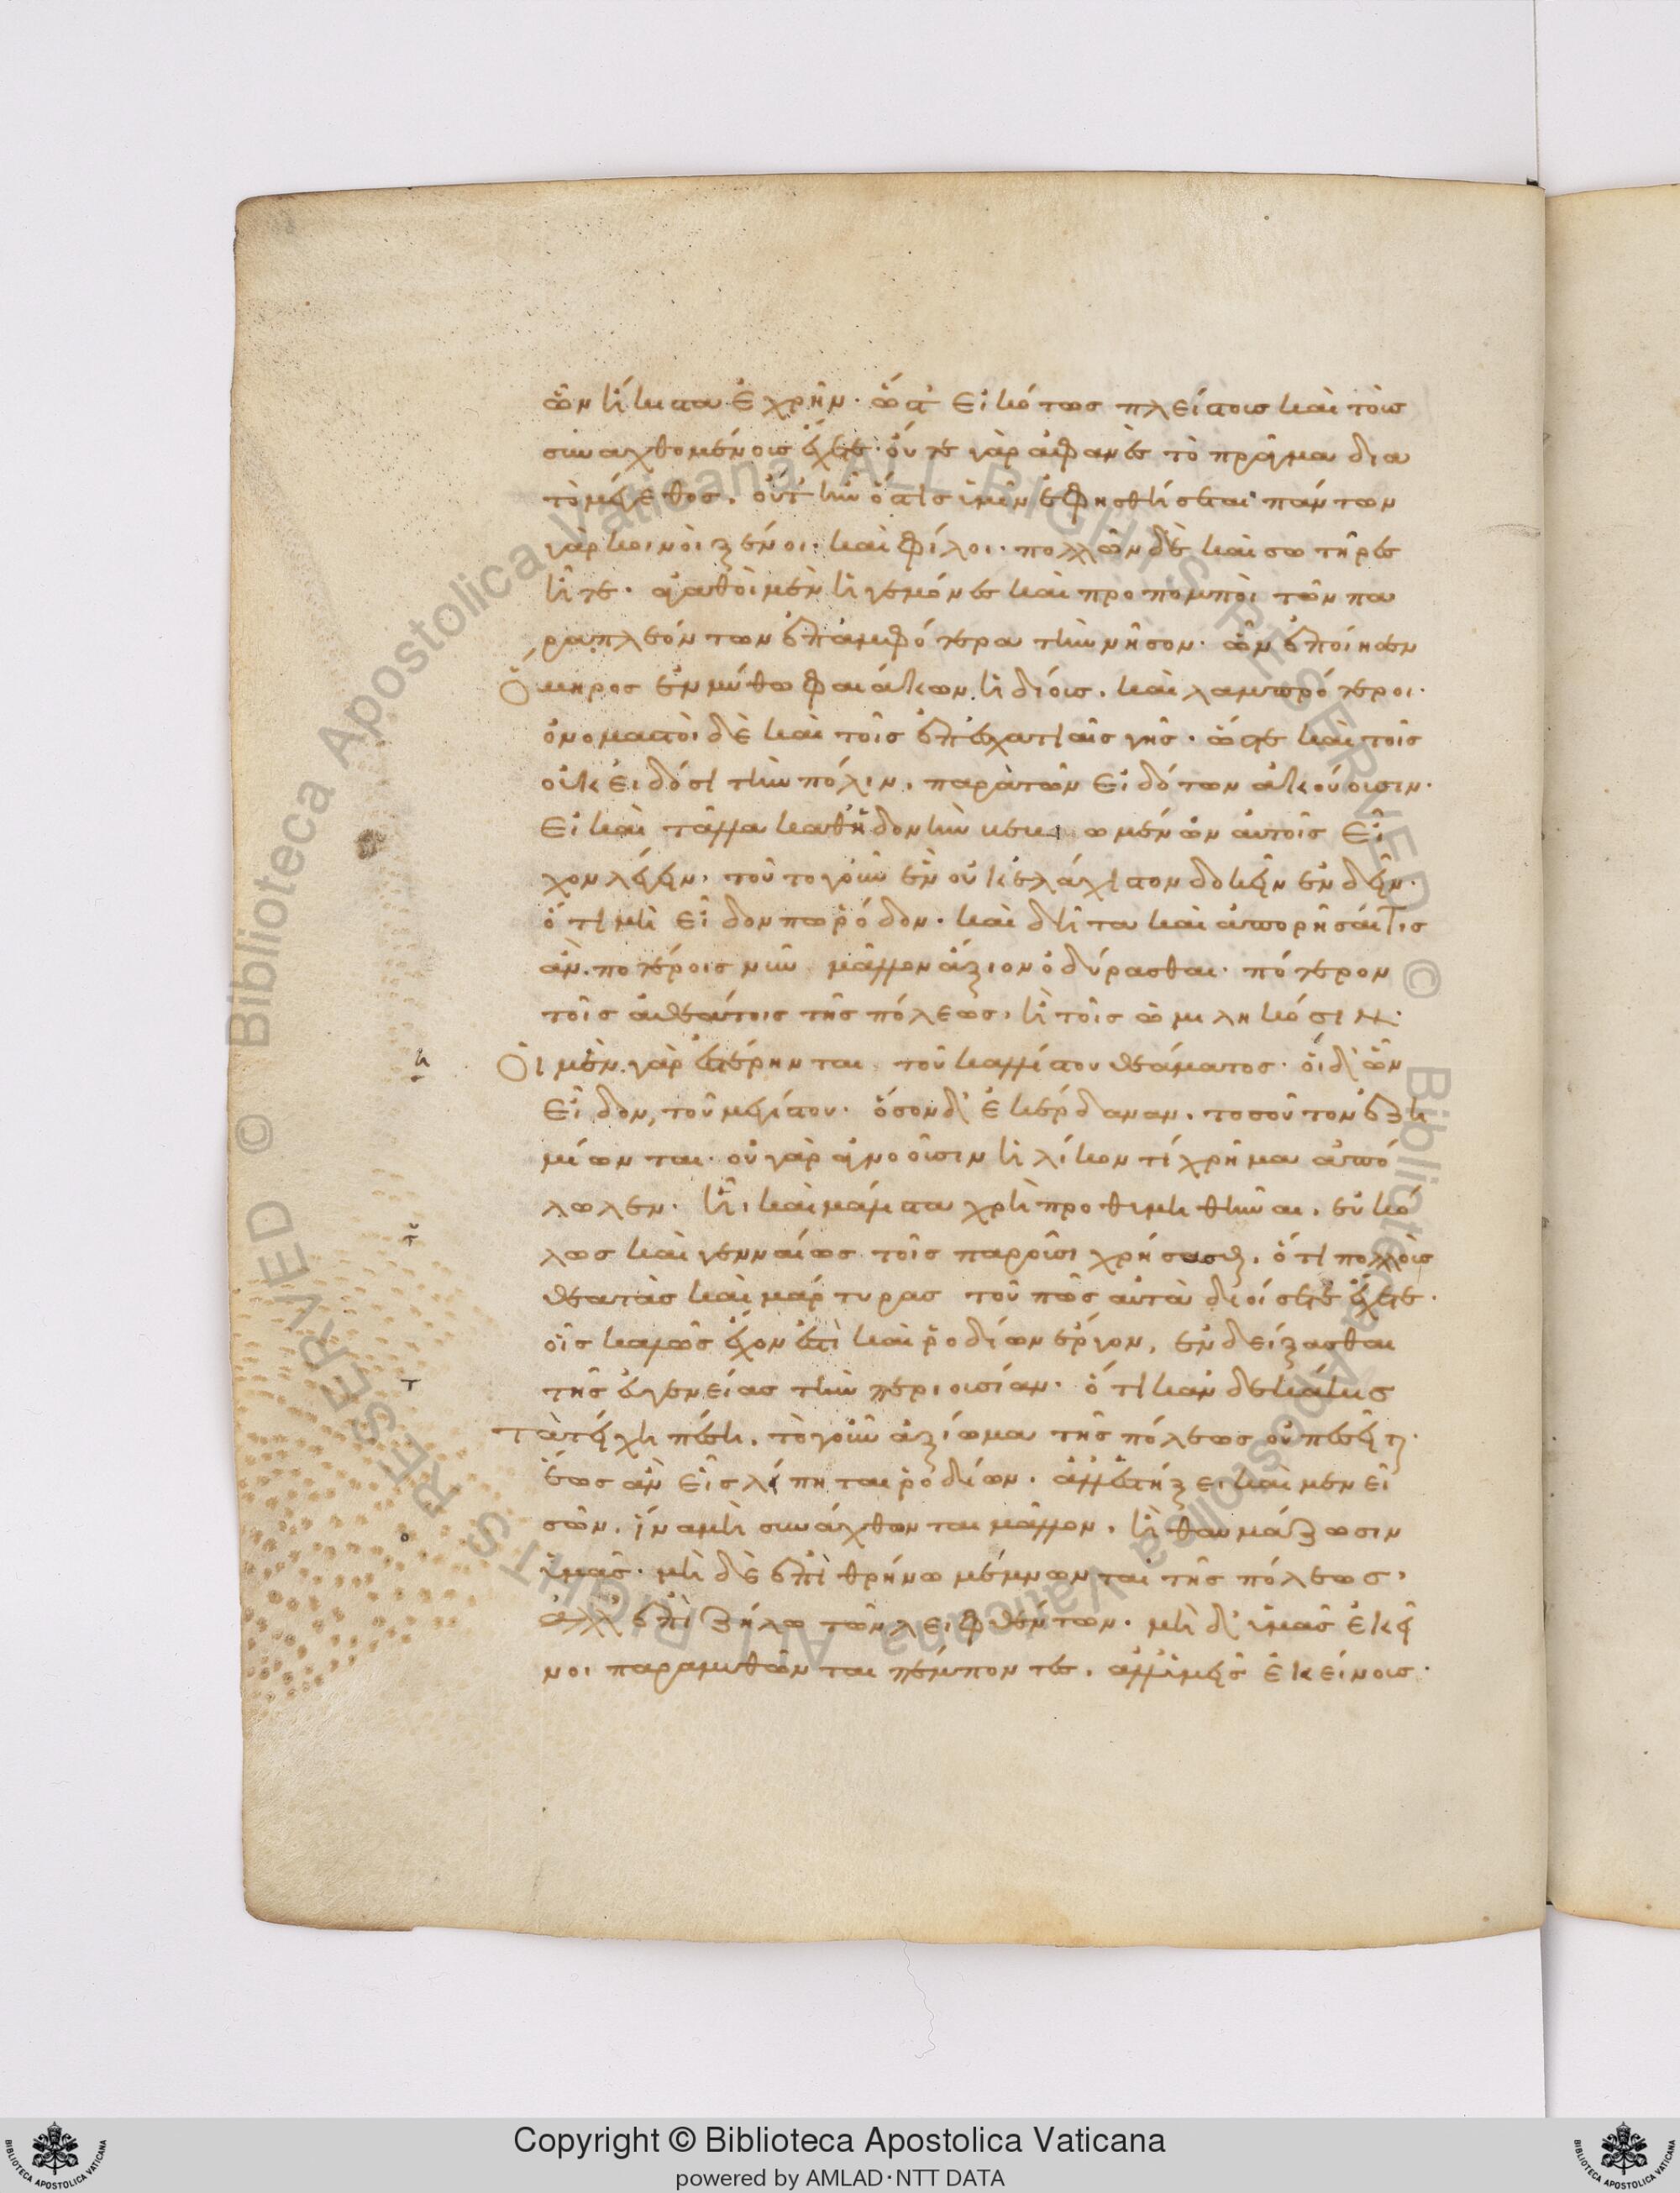 ὧν ἥκιστα ἐχρῆν· ὥστ εἰκότως πλείστοις καὶ τοῖς
συναχθομένοις ἔχετε· οὔτε γὰρ ἀφανὲς τὸ πρᾶγμα δια
τὸ μέγεθος, οὔτ ἦν ὅστις ὑμῖν ἐφησθήσεται· πάντων
γὰρ κοινοὶ ξένοι· καὶ φίλοι· πολλῶν δὲ καὶ σωτῆρες
ἦτε· ἀγαθοὶ μὲν ἡγεμόνες καὶ προπομποὶ τῶν πα
ραπλεόντων ἐπ ἀμφότερα τὴν νῆσον· ὧν ἐποίησεν
Ὅμηρος ἐν μύθω φαιάκων ἡδίους, καὶ λαμπρότεροι·
ὀνομαστοὶ δὲ καὶ τοῖς ἐπ ἐσχατιαῖς γῆς· ὥστε καὶ τοῖς
οὐκ εἰδόσι τὴν πόλιν, παρὰ τῶν εἰδότων ἀκούουσιν·
Εἰ καὶ τἄλλα καθ ἡδονὴν
χον λέγειν, τοῦτο γοῦν ἓν οὐκ ἐλάχιστον δοκεῖν ἐνδεῖν·
ὅτι μὴ εἶδον πω ῥόδον· καὶ δῆτα καὶ ἀπορήσαι τις
ἂν ποτέροις νῦν μᾶλλον ἄξιον ὀδύρασθαι· πότερον
τοῖς ἀθεάτοις τῆς πόλεως, ἢ τοῖς ὡμιληκόσιν·
Οἱ μὲν γὰρ ἐστέρηνται τοῦ καλλίστου θεάματος· οἱ δ ὧν
εἶδον, τοῦ μεγίστου· ὅσον δ ἐκέρδαναν, τοσοῦτον ἐζη
μίωνται· οὐ γὰρ ἀγνοοῦσιν ἡλίκον τί χρῆμα ἀπό
λωλεν· ἧ, καὶ μάλιστα χρὴ προθυμηθῆναι, εὐκό
λως καὶ γενναίως τοῖς παροῦσι χρήσασθαι, ὅτι πολλοὺς
θεατὰς καὶ μάρτυρας τοῦ πῶς αὐτὰ διοίσετε ἔχετε·
οἷς καλῶς ἔχον ἐστὶ καὶ ῥοδίων ἔργον, ἐνδείξασθαι
τῆς εὐγενείας τὴν περιουσίαν· ὅτι κἂν δεκάκις
τὰ τείχη πέση, τὸ γοῦν ἀξίωμα τῆς πόλεως οὐ πεσεῖται·
ἕως ἂν εἷς λίπηται ῥοδίων· ἀλλ ἑστήξει καὶ μενεῖ
σῶν, ἵνα μὴ συνάχθωνται μᾶλλον, ἢ θαυμάζωσιν
ὑμᾶς· μὴ δὲ ἐπὶ θρήνω μέμνωνται τῆς πόλεως,
ἀλλ ἐπὶ ζήλω τῶν λειφθέντων· μὴ δ ὑμᾶς ἐκεῖ
νοι παραμυθῶνται πέμποντες, ἀλλ ὑμεῖς ἐκείνοις·
Copyright © Biblioteca Apostolica Vaticana
powered by AMLAD·NTT DATA